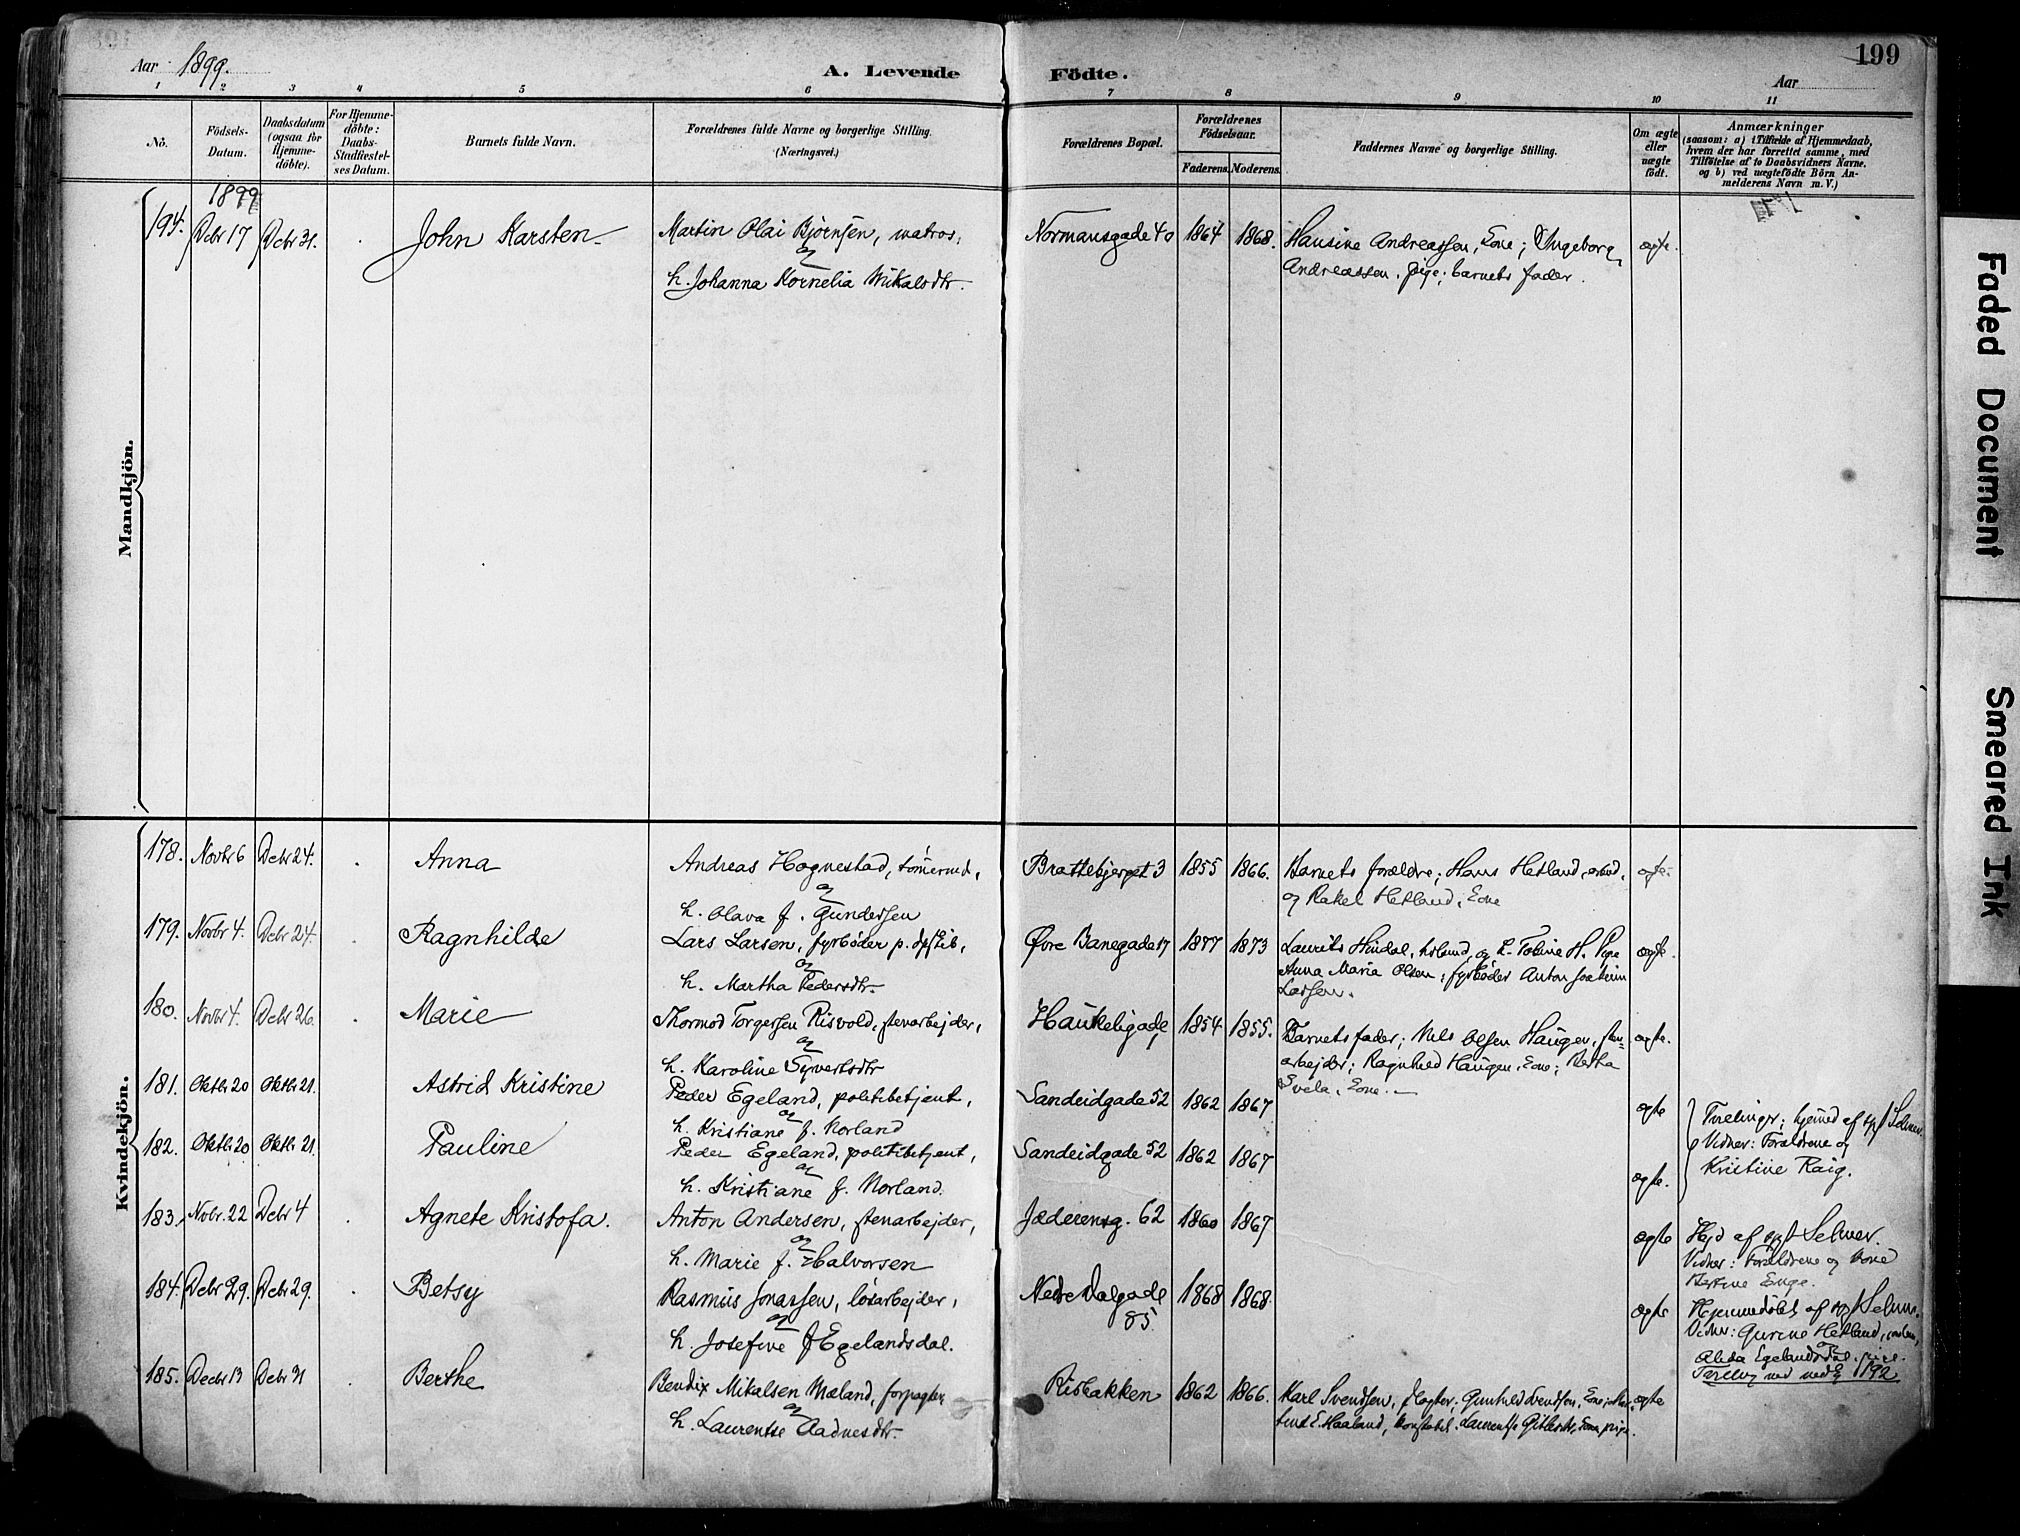 Aar 1899.
A. Levende Födte.
199
Aar
1 2 3 4 5 6 7 8 9 10 11
No.
Födsels-Datum.
Daabsdatum (ogsaa for Hjemme-döbte).
For Hjemme-döbte: Daabs-Stadfæstel-ses Datum.
Barnets fulde Navn.
Forældrenes fulde Navne og borgerlige Stilling.
(Næringsvei.)
Forældrenes Bopæl.
Forældrenes Födselsaar.
Faderens. Moderens.
Faddernes Navne og borgerlige Stilling.
Om ægte eller uægte födt.
Anmærkninger
(saasom: a) i Tilfælde af Hjemmedaab,
hvem der har forrettet samme, med
Tilföielse af to Daabsvidners Navne,
og b) ved uægtefödte Börn An-
melderens Navn m. V.)
Mandkjön.
1899
194. Debr 17 Debr 31. John Karsten
Martin Olai Bjørnsen, matros,
og
h. Johanna Kornelia Mikalsdtr.
Normansgade 40 1864 1868.
Hansine Andreassen, Kone; Ingeborg
Andreassen, pige; barnets fader.
ægte.
Kvindekjön.
178. Novbr 6 Debr 24. Anna
Andreas Hognestad, tømermd,
og
h. Olava f. Gundersen
Brattebjerget 3 1855 1866.
Barnets forældre; Hans Hetland, arbmd,
og Rakel Hetland, Kone
ægte.
179. Novbr 4. Debr 24. Ragnhilde
Lars Larsen, fyrbøder p. dpskib,
og
h. Martha Pedersdtr.
Øvre Banegade 17 1877 1873
Laurits Hindal, og h. Tobine H. Pige
Anna Maria Olsen; fyrbøder Anton Joakim
Larsen.
ægte.
180. Novbr 4. Debr 26. Marie
Thormod Torgersen Risvold, stenarbejder,
og
h. Karoline Syvertsdtr
Haukeligade 1854 1855.
Barnets fader; Nils Olsen Haugen, sten-
arbejder; Ragnhild Haugen, Kone; Bertha
Svela, Kone.
ægte.
181. Oktbr 20 Oktbr 21. Astrid Kristine
Peder Egeland, politibetjent,
og
h. Kristiane f. Norland
Sandeidgade 52 1862 1867
ægte
Tvillinger; hjemd af spt Selmer.
Vidner: Forældrene og
Kristine Raig.
182. Oktbr 20 Oktbr 21. Pauline
Peder Egeland, politibetjent,
og
h. Kristiane f. Norland.
Sandeidgade 52 1862 1867
ægte.
183. Nobr. 22 Debr 4 Agnete Kristofa.
Anton Andersen, stenarbejder,
og
h. Marie f. Halvorsen
Jæderensg. 62 1860 1867
ægte
Hjd af spt Selmer.
Vidner: Forældrene og Kone
Bertine Enge.
184. Debr 29. Debr 29. Betsy
Rasmus Jonassen, løsarbejder,
og
h Josefine f Egelandsdal.
Nedre Dalgade
85. 1868 1868.
ægte
Hjemmedøbt af spt Selmer.
Vidner: Gurine Hetland,
Alida Egelandsdal, pige.
185. Decbr 13 Debr 31 Berthe
Bendix Mikalsen Mæland, forpagter
og
h. Laurentse Aadnesdtr.
Risbakken 1862 1866.
Karl Svendsen, Gunhild Svendsen, Kone;
E. Haaland, konstabel. Laurentse pige.
ægte
Faded Document
Smeared Ink